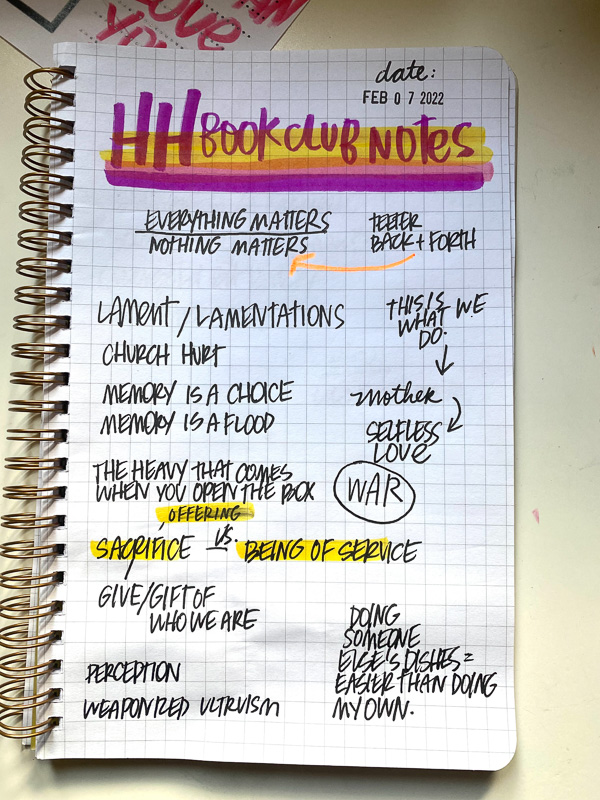 LOVE
YOU
AN
date:
FEB 07 2022
HH BOOK CLUB NOTES
EVERYTHING MATTERS
NOTHING MATTERS
TEETER
BACK + FORTH
LAMENT / LAMENTATIONS
CHURCH HURT
MEMORY IS A CHOICE
MEMORY IS A FLOOD
THIS IS
WHAT WE
DO.
mother
SELFLESS
LOVE
THE HEAVY THAT COMES
WHEN YOU OPEN THE BOX
WAR
OFFERING
SACRIFICE VS. BEING OF SERVICE
GIVE/GIFT OF
WHO WE ARE
PERCEPTION
WEAPONIZED ULTRUISM
DOING
SOMEONE
ELSE'S DISHES =
EASIER THAN DOING
MY OWN.